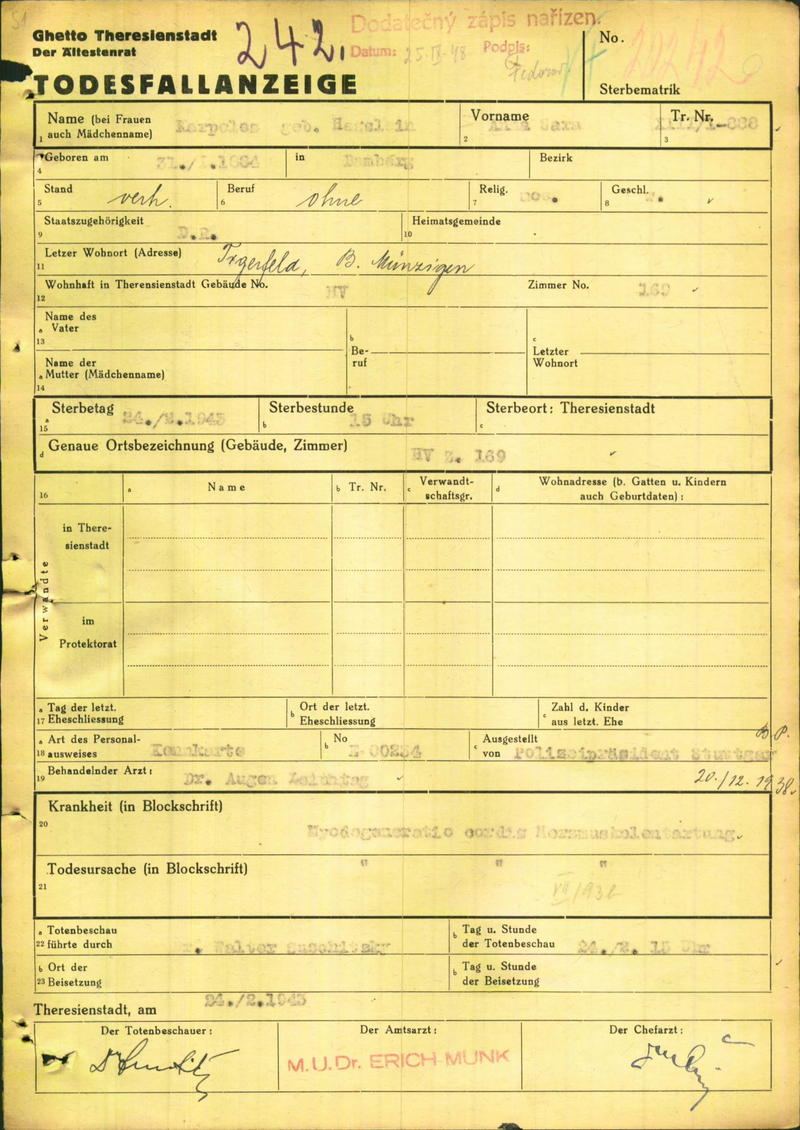 Ghetto Theresienstadt
Der Ältestenrat
242.
Dodatečný zápis nařízen.
Datum: Podpis:
No.
TODESFALLANZEIGE
Sterbematrik
Name (bei Frauen auch Mädchenname) Karpeles geb.
Vorname Sara
Tr. Nr.
1 2 3
Geboren am in Bamberg Bezirk
4
Stand verh. Beruf ohne Relig. Geschl.
5 6 7 8
Staatszugehörigkeit D.R. Heimatsgemeinde
9 10
Letzer Wohnort (Adresse) B. Münzigen
11
Wohnhaft in Theresienstadt Gebäude No. Zimmer No. 169
12
Name des
a Vater
13
b Beruf
c Letzter Wohnort
Name der
a Mutter (Mädchenname)
14
Sterbetag 24./2.1943 Sterbestunde 15 Uhr Sterbeort: Theresienstadt
a 15 b c
d Genaue Ortsbezeichnung (Gebäude, Zimmer) HV Z. 169
16 a Name b Tr. Nr. c Verwandtschaftsgr. d Wohnadresse (b. Gatten u. Kindern auch Geburtdaten) :
Verwandte
in Theresienstadt
im Protektorat
a Tag der letzt. b Ort der letzt. c Zahl d. Kinder
17 Eheschliessung Eheschliessung aus letzt. Ehe
B. P.
a Art des Personal- b No c Ausgestellt
18 ausweises Kennkarte von Polizeipräsident Stuttgart
19 Behandelnder Arzt : Dr. 20./12. 1938.
Krankheit (in Blockschrift)
20
Myodegeneratio cordis Herzmuskelentartung
Todesursache (in Blockschrift) " " "
21
a Totenbeschau b Tag u. Stunde
22 führte durch Walter der Totenbeschau 24./2. 15 Uhr
b Ort der b Tag u. Stunde
23 Beisetzung der Beisetzung
Theresienstadt, am 24./2.1943
Der Totenbeschauer : Der Amtsarzt : Der Chefarzt :
M.U.Dr. ERICH MUNK